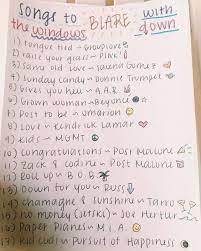 songs to BLARE with
the windows down
1) tongue tied ~ Grouplove
2) raise your glass ~ P!NK
3) same old love ~ selena Gomez
4) sunday candy ~ Donnie Trumpet
5) Gives you hell ~ A.A.R.
6) Grown woman ~ Beyonce
7) Post to be ~ omarion
8) Love ~ Kendrick Lamar
9) kids ~ MGMT
10) congratulations ~ Post Malone
11) zack & codeine ~ Post Malone
12) Roll up ~ B.O.B
13) Down for you ~ Russ
14) champagne & sunshine ~ Tarro
15) no money (jetski) ~ Joe Hertler
16) Paper Planes ~ M.I.A.
17) kid cudi ~ pursuit of Happiness